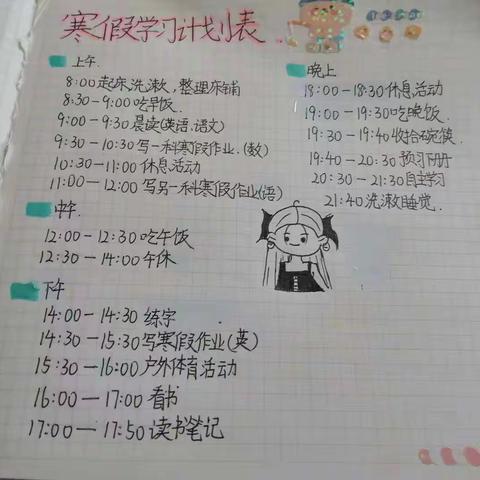 寒假学习计划表
上午
8:00起床洗漱,整理床铺
8:30-9:00吃早饭.
9:00-9:30晨读(英语.语文)
9:30-10:30写一科寒假作业.(数)
10:30-11:00休息活动
11:00-12:00写另一科寒假作业(语)
中午
12:00-12:30吃午饭
12:30-14:00午休
下午
14:00-14:30练字
14:30-15:30写寒假作业(英)
15:30-16:00户外体育活动
16:00-17:00看书
17:00-17:50读书笔记
晚上
18:00-18:30休息活动
19:00-19:30吃晚饭.
19:30-19:40收拾碗筷.
19:40-20:30预习下册
20:30-21:30自主学习
21:40洗漱睡觉.